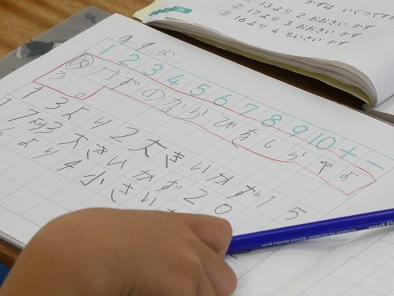 かずは いくつですか
13より 2 おおきい かず
② 17より 3 おおきい かず
③ 16より 4 ちいさい かず
1 2 3 4 5 6 7 8 9 10 + −
かずのならびをしらべよ
う
13より2大きいかず15
17より3大きいかず20
6より4小さい